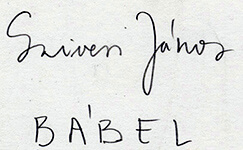 Sziveri János
BÁBEL